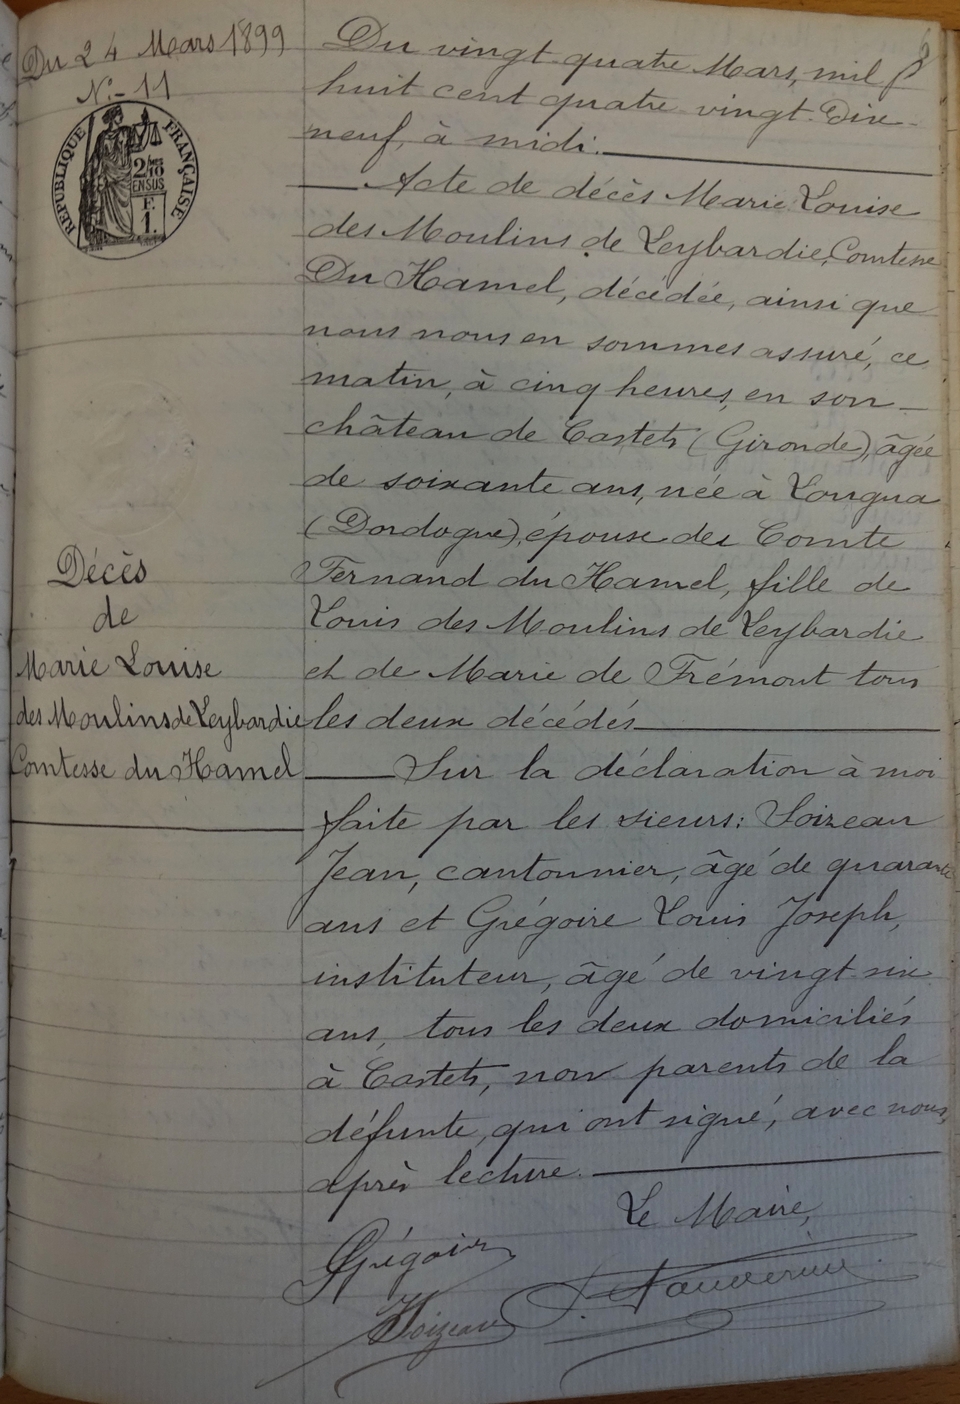 Du 24 Mars 1899
N:- 11
REPUBLIQUE FRANÇAISE
2/10
EN SUS
F.
1.
Décès
de
Marie Louise
des Moulins de Leybardie
Comtesse du Hamel
Du vingt quatre Mars, mil
huit cent quatre vingt Dix-
neuf, à midi.
Acte de décès Marie Louise
des Moulins de Leybardie, Comtesse
Du Hamel, décédée, ainsi que
nous nous en sommes assuré, ce
matin, à cinq heures, en son
château de Castets (Gironde), âgée
de soixante ans, née à Longua
(Dordogne), épouse du Comte
Fernand du Hamel, fille de
Louis des Moulins de Leybardie
et de Marie de Frémont tous
les deux décédés
Sur la déclaration à moi
faite par les sieurs: Soizeau
Jean, cantonnier, âgé de quarante
ans et Grégoire Louis Joseph,
instituteur, âgé de vingt six
ans, tous les deux domiciliés
à Castets, non parents de la
défunte, qui ont signé, avec nous,
après lecture.
Le Maire,
Grégoire
Soizeau